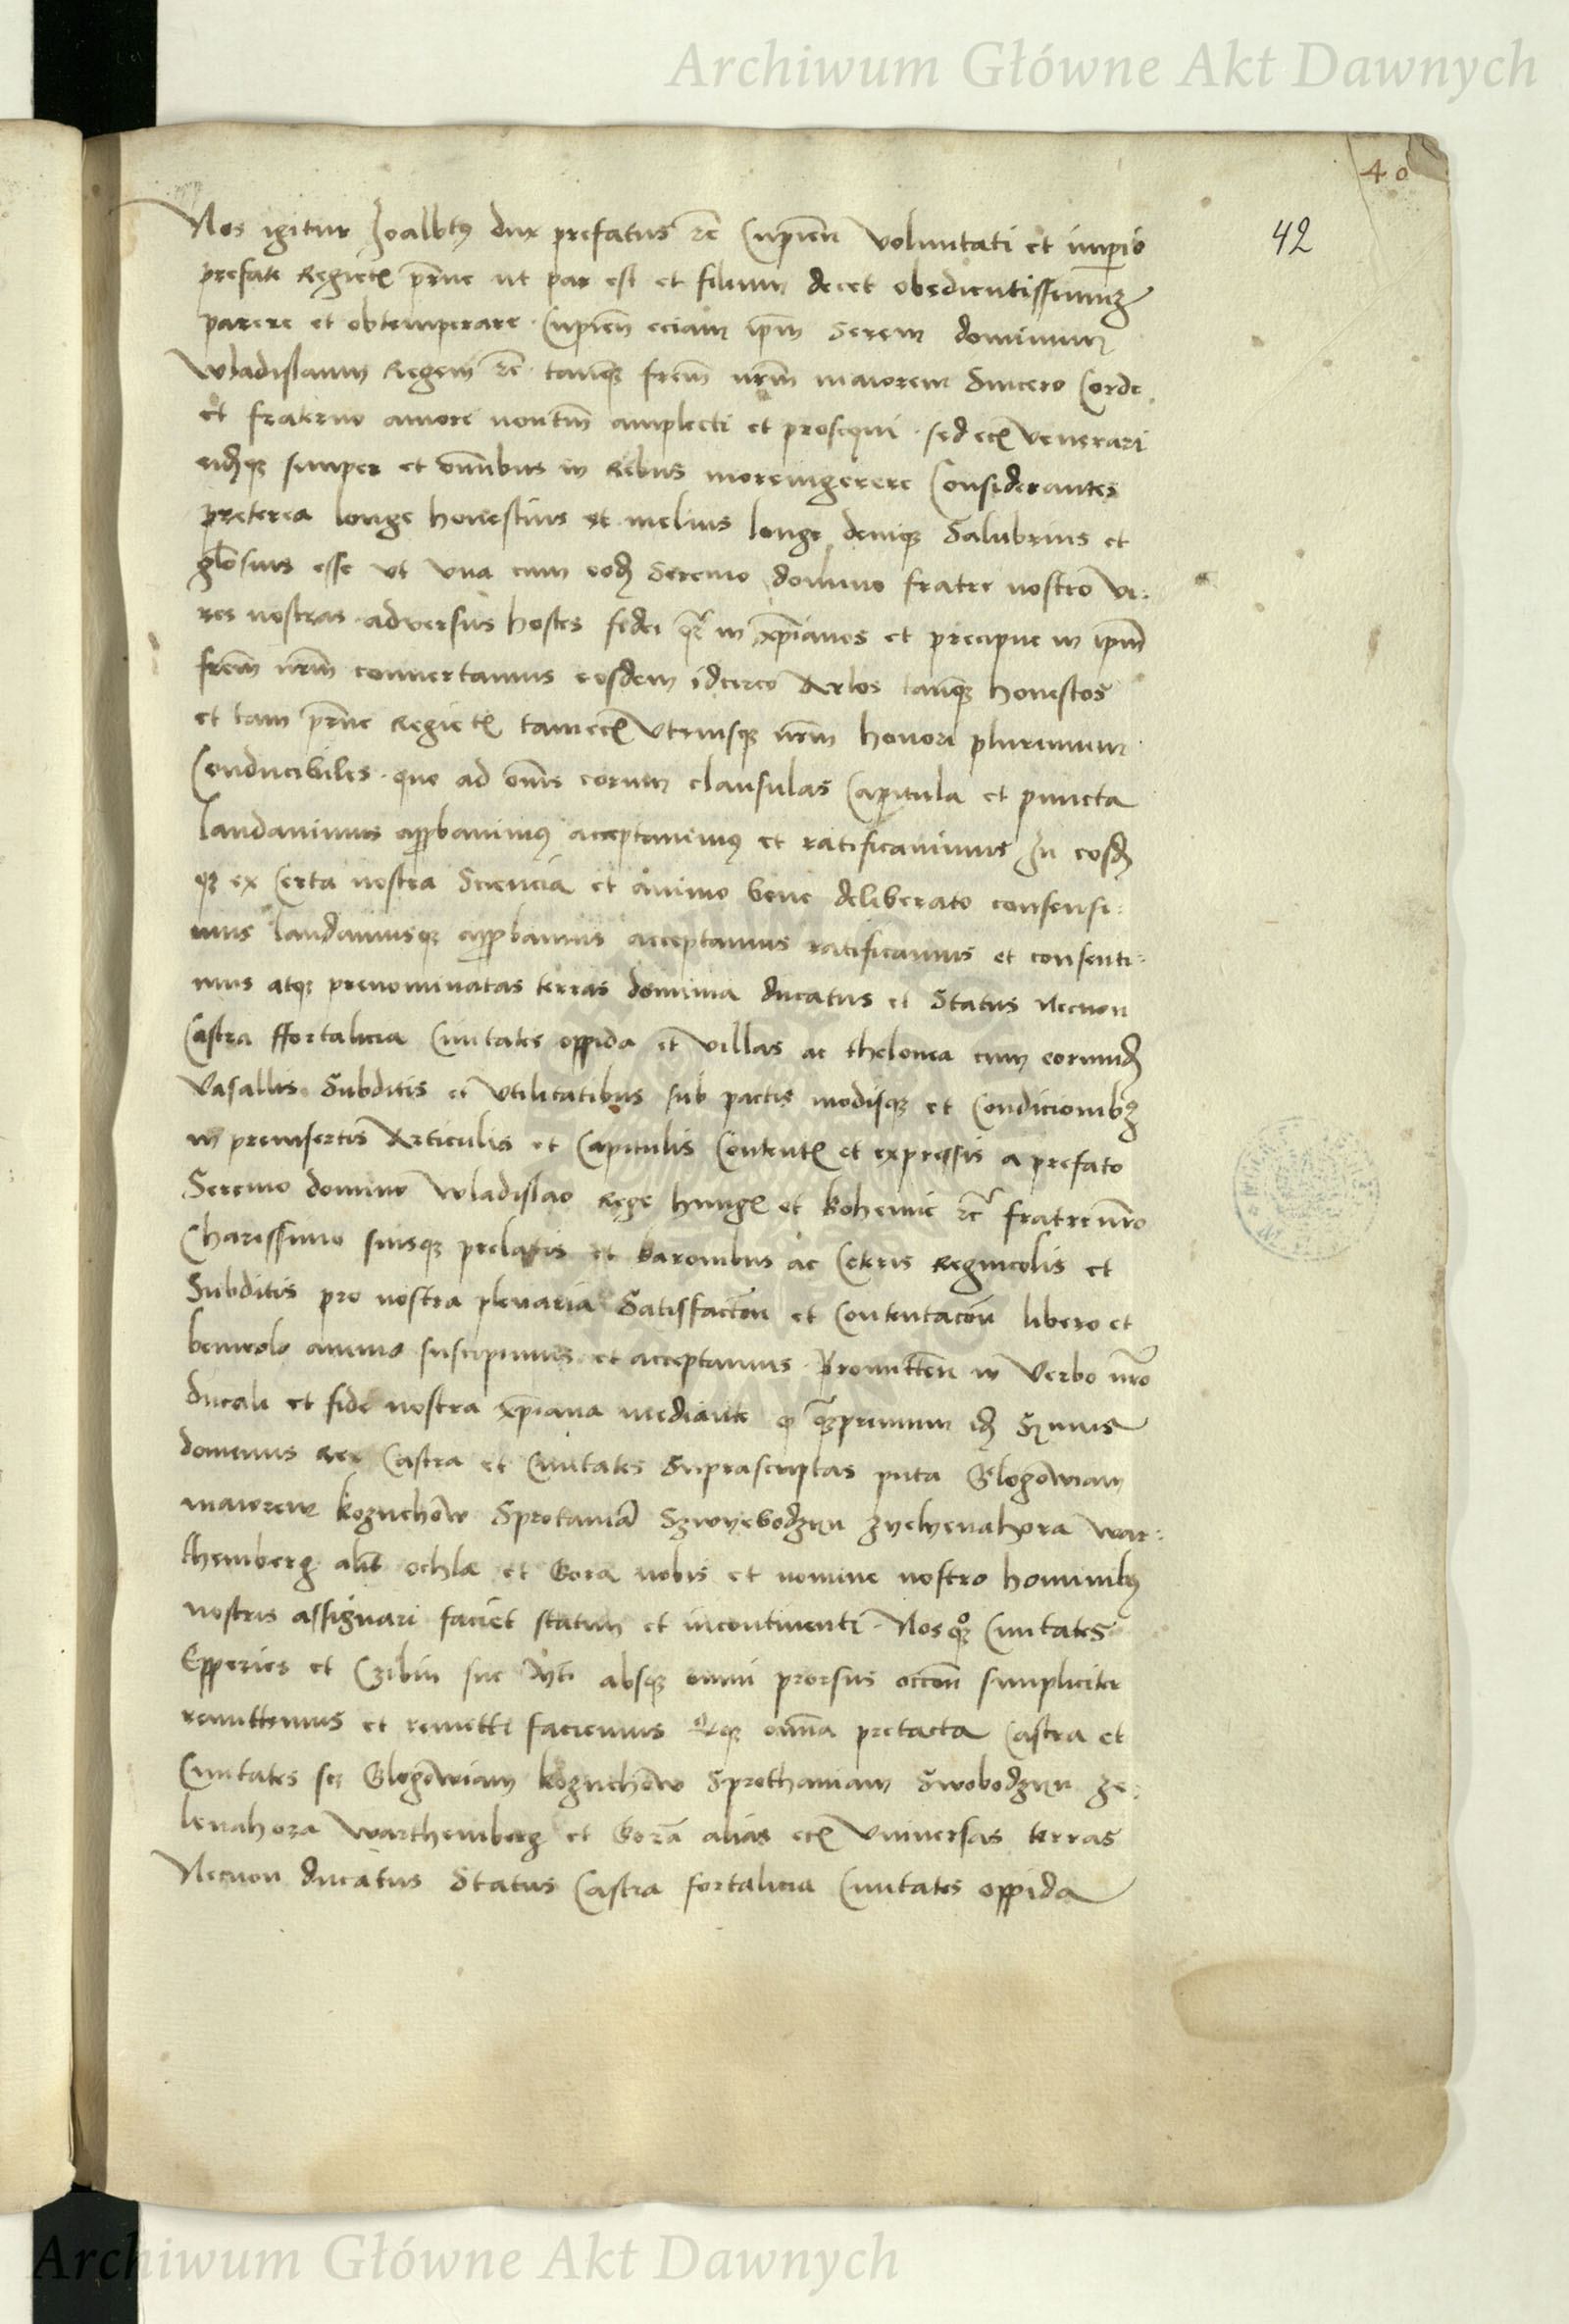 Archiwum Główne Akt Dawnych
40
42
Nos igitur Joalbtꝰ dux prefatus ꝛc Cupien̄ voluntati et imperio
prefate Regietꝭ pr̄ne ut par est et filium decet obedientissimūꝫ
parere et obtemperare. Cupien̄ eciam ip̄m Serem dominum
Wladislaum Regem ꝛc tanqꝫ frēm nr̄m maiorem Sincero Corde
et fraterno amore nontm̄ amplecti et prosequi. sed ecꝭ venerari
eidꝫqꝫ semper et om̄ibus in Rebus moremgerere Considerantes
preterea longe honestius et melius longe deniqꝫ Salubrius et
gl̄osius esse ut una cum eodꝫ Seremo domino fratre nostro vi:
res nostras adversus hostes fidei qꝫ in xp̄ianos et precipue in ip̄m
frēm nr̄m convertamus eosdem idcirco Ar̄los tanqꝫ honestos
et tam pr̄ne Regietꝭ tamecꝭ Utriusqꝫ nr̄m honori plurimum
Conducibiles. quo ad om̄is eorum clausulas Capitula et puncta
Laudavimus app̄bavimꝰ acceptavimꝰ et ratificavimus In eosdꝫ
qꝫ ex Certa nostra Sciencia et animo bene deliberato consensi:
mus laudamusqꝫ app̄bamus acceptamus ratificamus et consenti:
mus atqꝫ prenominatas terras dominia ducatus et Status Necnon
Castra ffortalicia Civitates oppida et villas ac thelonea cum eorumdꝫ
Vasallis Subditis et Utilitatibus sub pactis modisqꝫ et Condicionibꝫ
in preinsertis Articulis et Capitulis Contentꝭ et expressis a prefato
Seremo domino Wladislao Rege hungꝭ et bohemie ꝛc fratre nr̄o
Charissimo suisqꝫ prelatis et baronibus ac Ceteris Regnicolis et
Subditis pro nostra plenaria Satisfactōn et Contentacōn libero et
benivolo animo suscipimus et acceptamus. Promitten̄ in Verbo nr̄o
ducali et fide nostra xp̄iana mediante qꝫ qꝫprimum idꝫ Sꝫmus
dominus Rex Castra et Civitates Suprascriptas puta Glogōwiam
maiorem kozuchōw Sprotaniā Szwyebodzyn Zyelyenahora War:
themberg alit̄ ochla et Gora nobis et nomine nostro hominibꝫ
nostris assignari faciet statim et incontinenti. Nos qꝫ Civitates
Epperies et Czibin absqꝫ omni prorsus occōn simpliciter
remittemus et remitti faciemus om̄ia pretacta Castra et
Civitates sꝫ Glogōwiam kozuchōw Sprothaniam Swobodzyn Ze:
lenahora Warthemberg et Gorā alias ecꝭ Universas terras
Necnon ducatus Status Castra fortalicia Civitates oppida
Archiwum Główne Akt Dawnych